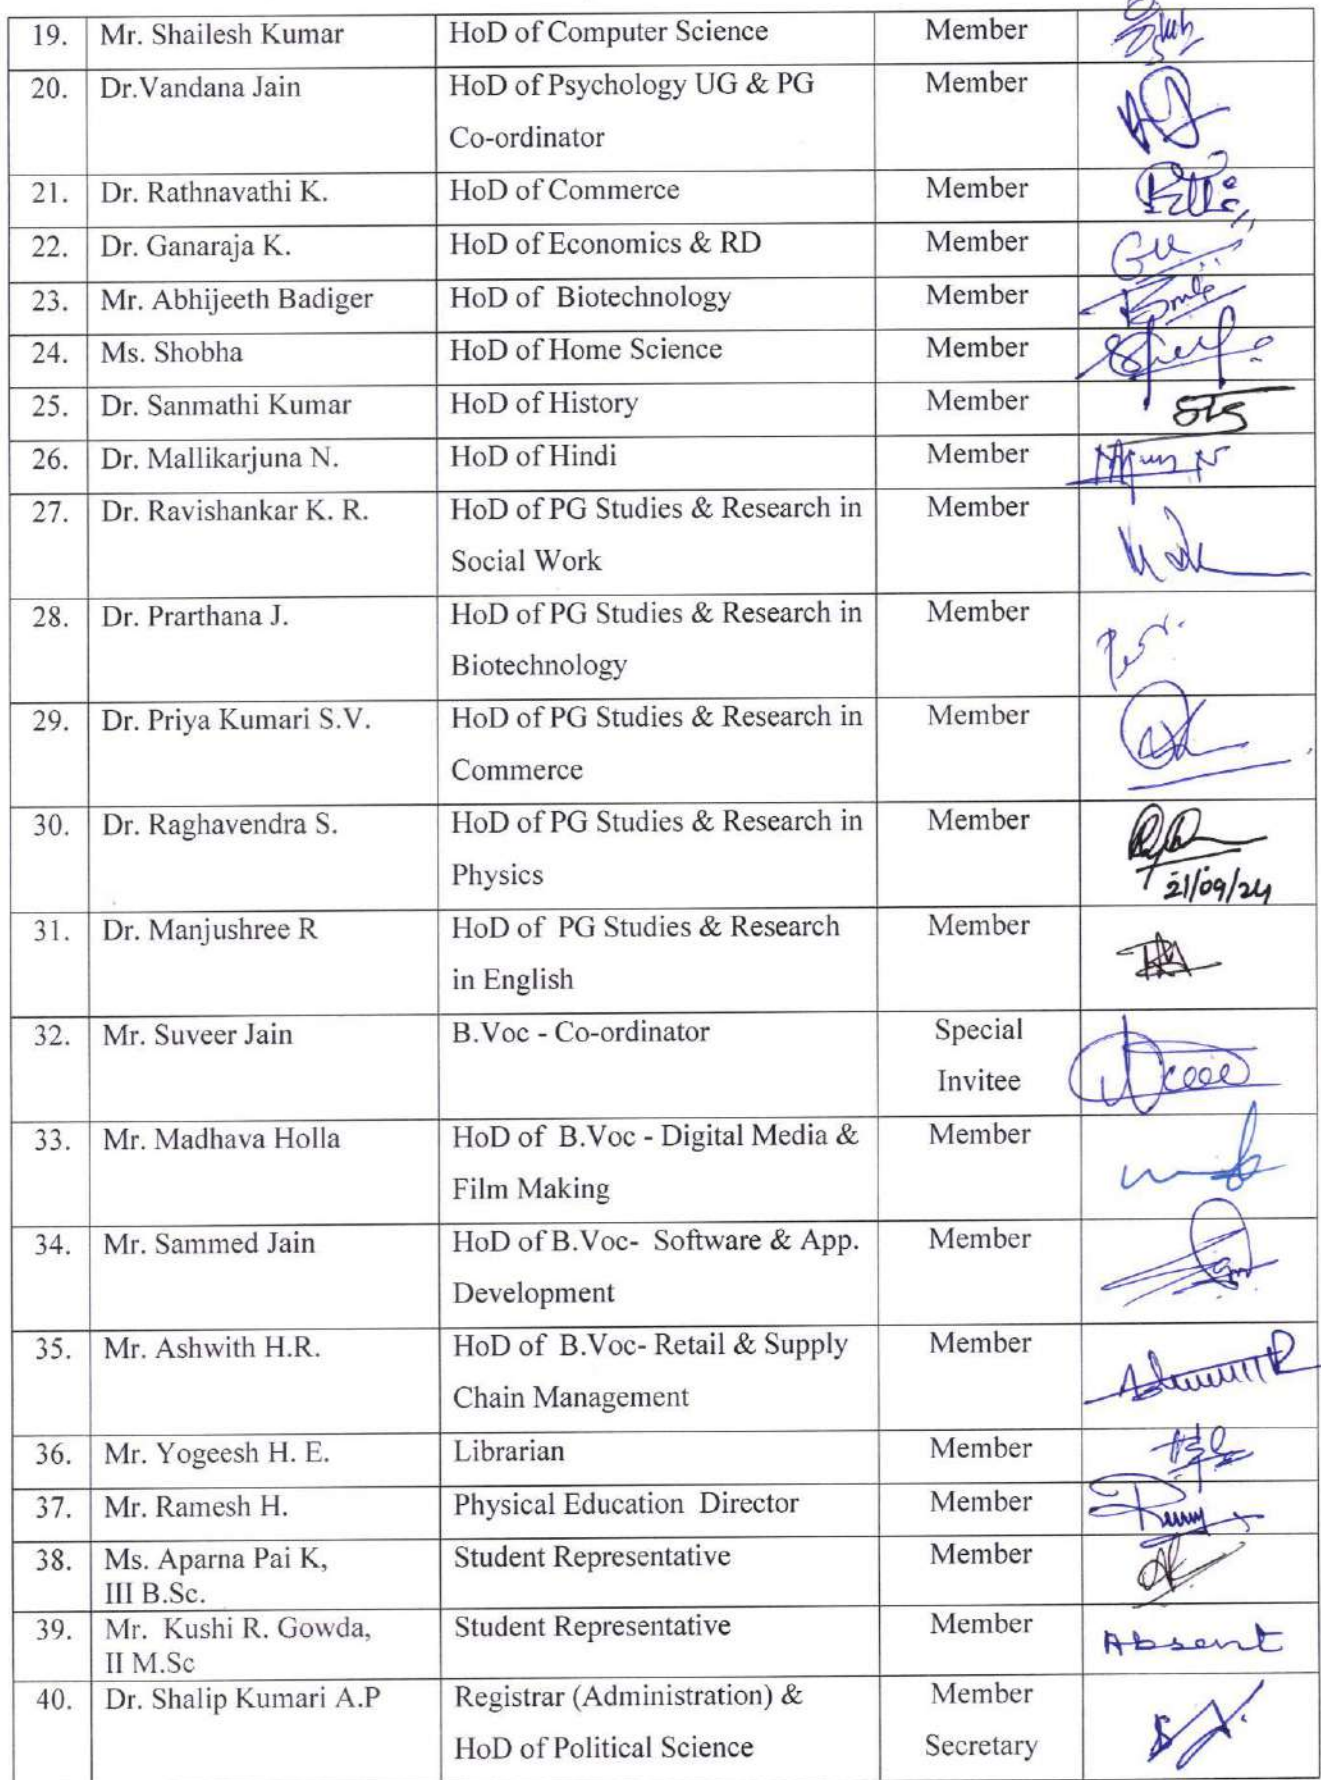 19. Mr. Shailesh Kumar HoD of Computer Science Member
20. Dr.Vandana Jain HoD of Psychology UG & PG Member
Co-ordinator
21. Dr. Rathnavathi K. HoD of Commerce Member
22. Dr. Ganaraja K. HoD of Economics & RD Member
23. Mr. Abhijeeth Badiger HoD of Biotechnology Member
24. Ms. Shobha HoD of Home Science Member
25. Dr. Sanmathi Kumar HoD of History Member
26. Dr. Mallikarjuna N. HoD of Hindi Member
27. Dr. Ravishankar K. R. HoD of PG Studies & Research in Member
Social Work
28. Dr. Prarthana J. HoD of PG Studies & Research in Member
Biotechnology
29. Dr. Priya Kumari S.V. HoD of PG Studies & Research in Member
Commerce
30. Dr. Raghavendra S. HoD of PG Studies & Research in Member
Physics 21/09/24
31. Dr. Manjushree R HoD of PG Studies & Research Member
in English
32. Mr. Suveer Jain B.Voc - Co-ordinator Special
Invitee
33. Mr. Madhava Holla HoD of B.Voc - Digital Media & Member
Film Making
34. Mr. Sammed Jain HoD of B.Voc- Software & App. Member
Development
35. Mr. Ashwith H.R. HoD of B.Voc- Retail & Supply Member
Chain Management
36. Mr. Yogeesh H. E. Librarian Member
37. Mr. Ramesh H. Physical Education Director Member
38. Ms. Aparna Pai K, Student Representative Member
III B.Sc.
39. Mr. Kushi R. Gowda, Student Representative Member Absent
II M.Sc
40. Dr. Shalip Kumari A.P Registrar (Administration) & Member
HoD of Political Science Secretary